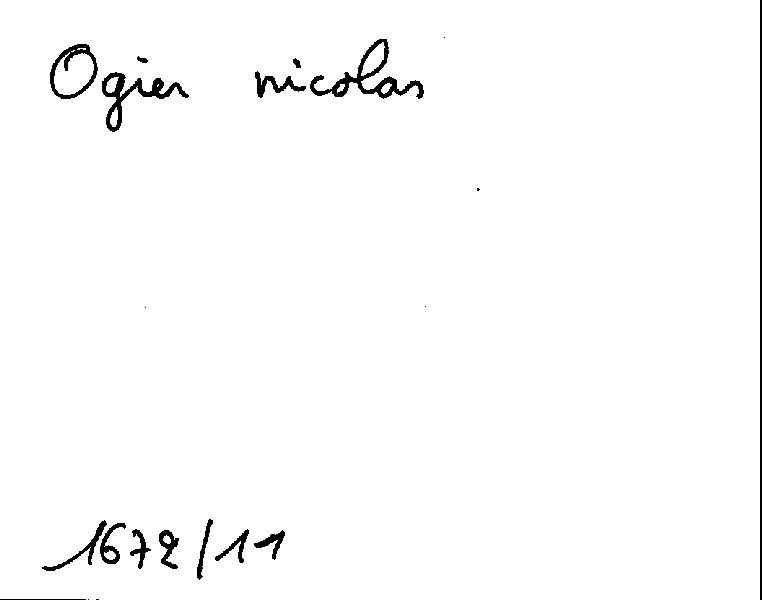 Ogier nicolas
1672/11